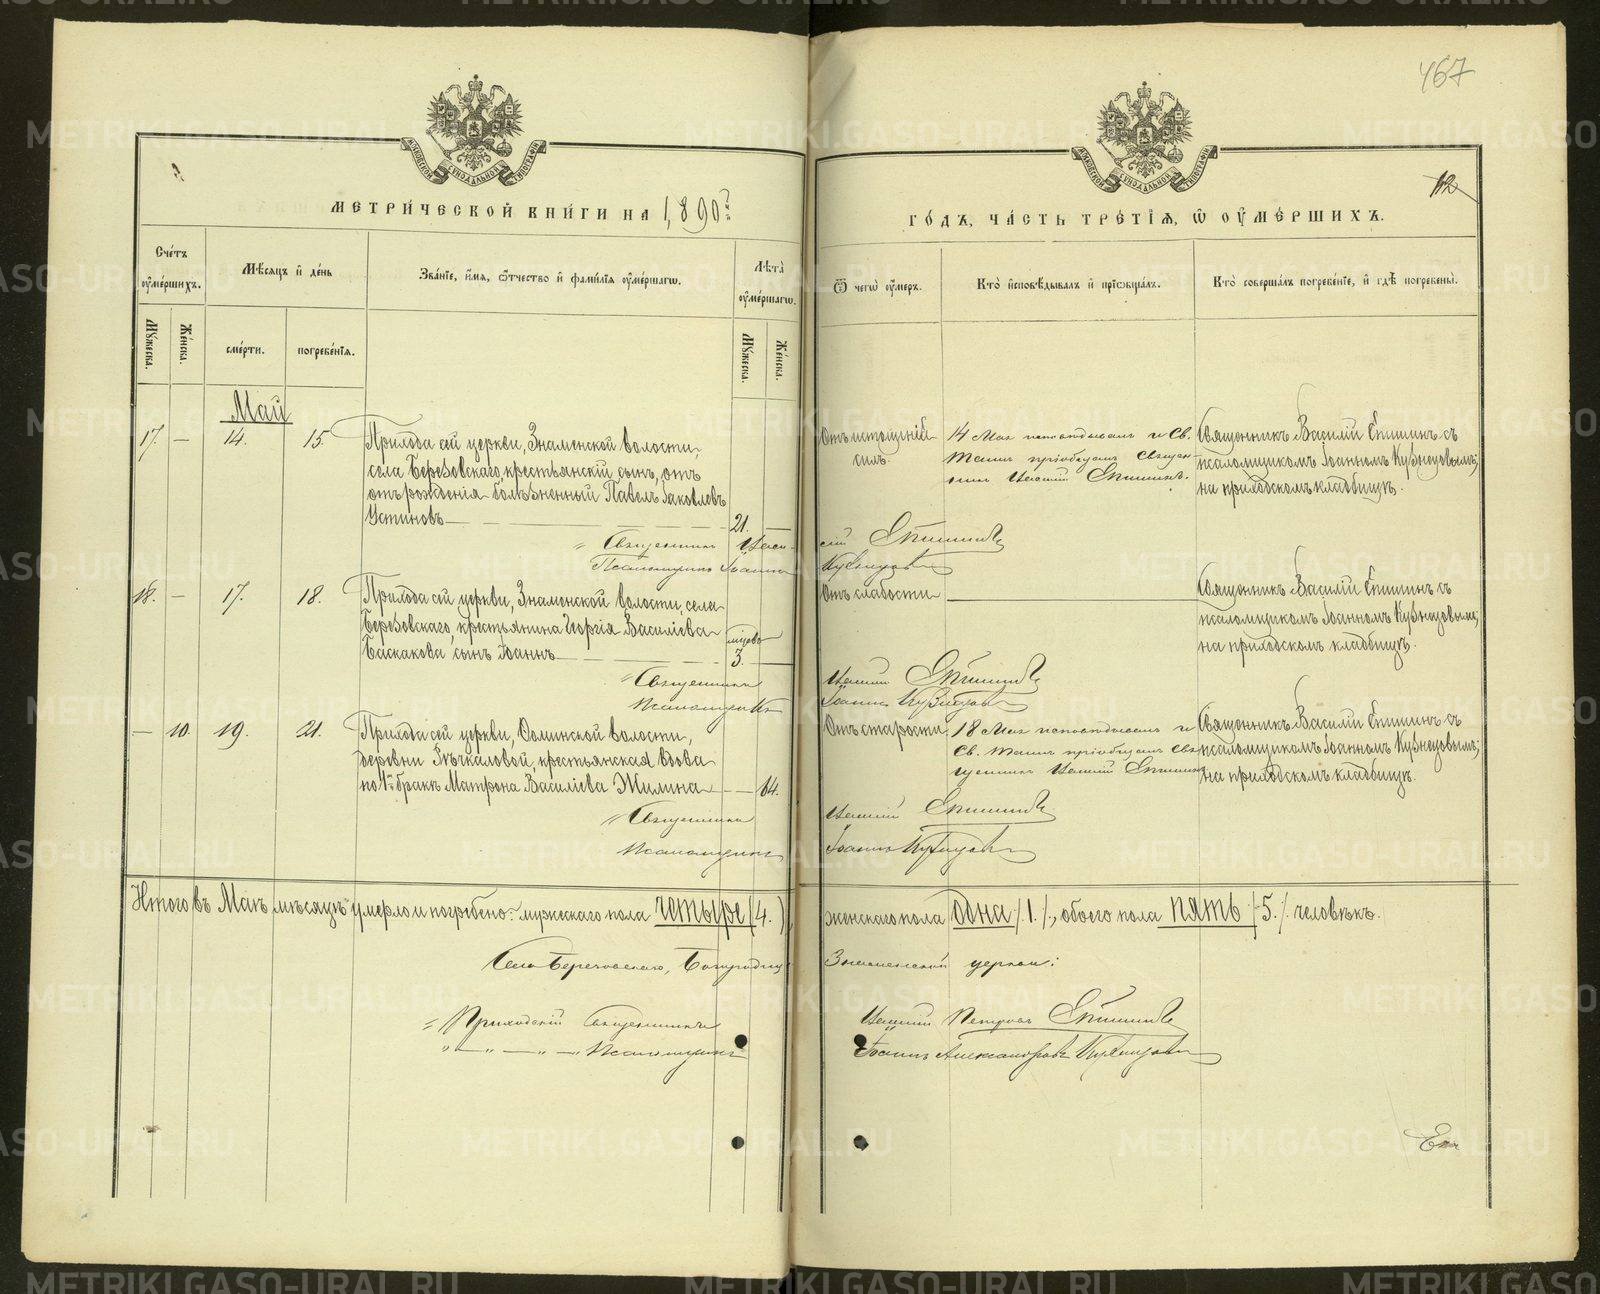 467
12
МЕТРИ́ЧЕСКОЙ КНИ́ГИ НА 1890й
ГО́ДЪ, ЧА́СТЬ ТРЕ́ТІѦ, Ѡ҆ ОУ҆МЕ́РШИХЪ.
Сче́тъ оу҆ме́ршихъ.
Мѣ́сяцъ и҆ де́нь
Зва́нїе, и҆́мя, ѻ҆́тчество и҆ фами́лїя оу҆ме́ршагѡ.
Лѣ́та оу҆ме́ршагѡ.
Ѿ чегѡ̀ оу҆́меръ.
Кто̀ и҆сповѣ́дывалъ и҆ прїѡбща́лъ.
Кто̀ соверша́лъ погребе́нїе, и҆ гдѣ̀ погребены̀.
Му́жеска.
Же́нска.
сме́рти.
погребе́нїѧ.
Му́жеска.
Же́нска.
Май
17. — 14. 15.
Прихода сей церкви, Знаменской волости,
села Березовскаго, крестьянскій сынъ, отъ
отъ рожденія болѣзненный Павелъ Іаковлевъ
Устиновъ — 21. —
Отъ истощенія
силъ.
14 Мая исповѣдывалъ и Св.
Таинъ пріобщалъ Священ-
никъ Василій Епишинъ.
Священникъ Василій Епишинъ съ
псаломщикомъ Іоанномъ Кузнецовымъ;
на приходскомъ кладбищѣ.
Священникъ Васи-
лій Епишинъ
Псаломщикъ Іоаннъ
Кузнецовъ
18. — 17. 18.
Прихода сей церкви, Знаменской волости, села
Березовскаго, крестьянина Георгія Василіева
Баскакова сынъ Іоаннъ — мѣсяцовъ 3. —
Отъ слабости —
Священникъ Василій Епишинъ съ
псаломщикомъ Іоанномъ Кузнецовымъ;
на приходскомъ кладбищѣ.
Священникъ
Василій Епишинъ
Псаломщикъ
Іоаннъ Кузнецовъ
— 10. 19. 21.
Прихода сей церкви, волости,
деревни крестьянская вдова
по 1мъ бракѣ Матрона Василіева Жилина — 64.
Отъ старости.
18 Мая исповѣдывалъ и
Св. Таинъ пріобщалъ Свя-
щенникъ Василій Епишинъ
Священникъ Василій Епишинъ съ
псаломщикомъ Іоанномъ Кузнецовымъ;
на приходскомъ кладбищѣ.
Священникъ
Василій Епишинъ
Псаломщикъ
Іоаннъ Кузнецовъ
Итого въ Маѣ мѣсяцѣ умерло и погребено: мужескаго пола четыре (4.),
женскаго пола одна /1/, обоего пола пять /5./ человѣкъ.
Села Березовскаго, Богородице-
Знаменской церкви:
Приходскій Священникъ
Василій Петровъ Епишинъ
" — " — " — Псаломщикъ
Іоаннъ Александровъ Кузнецовъ
METRIKI.GASO-URAL.RU